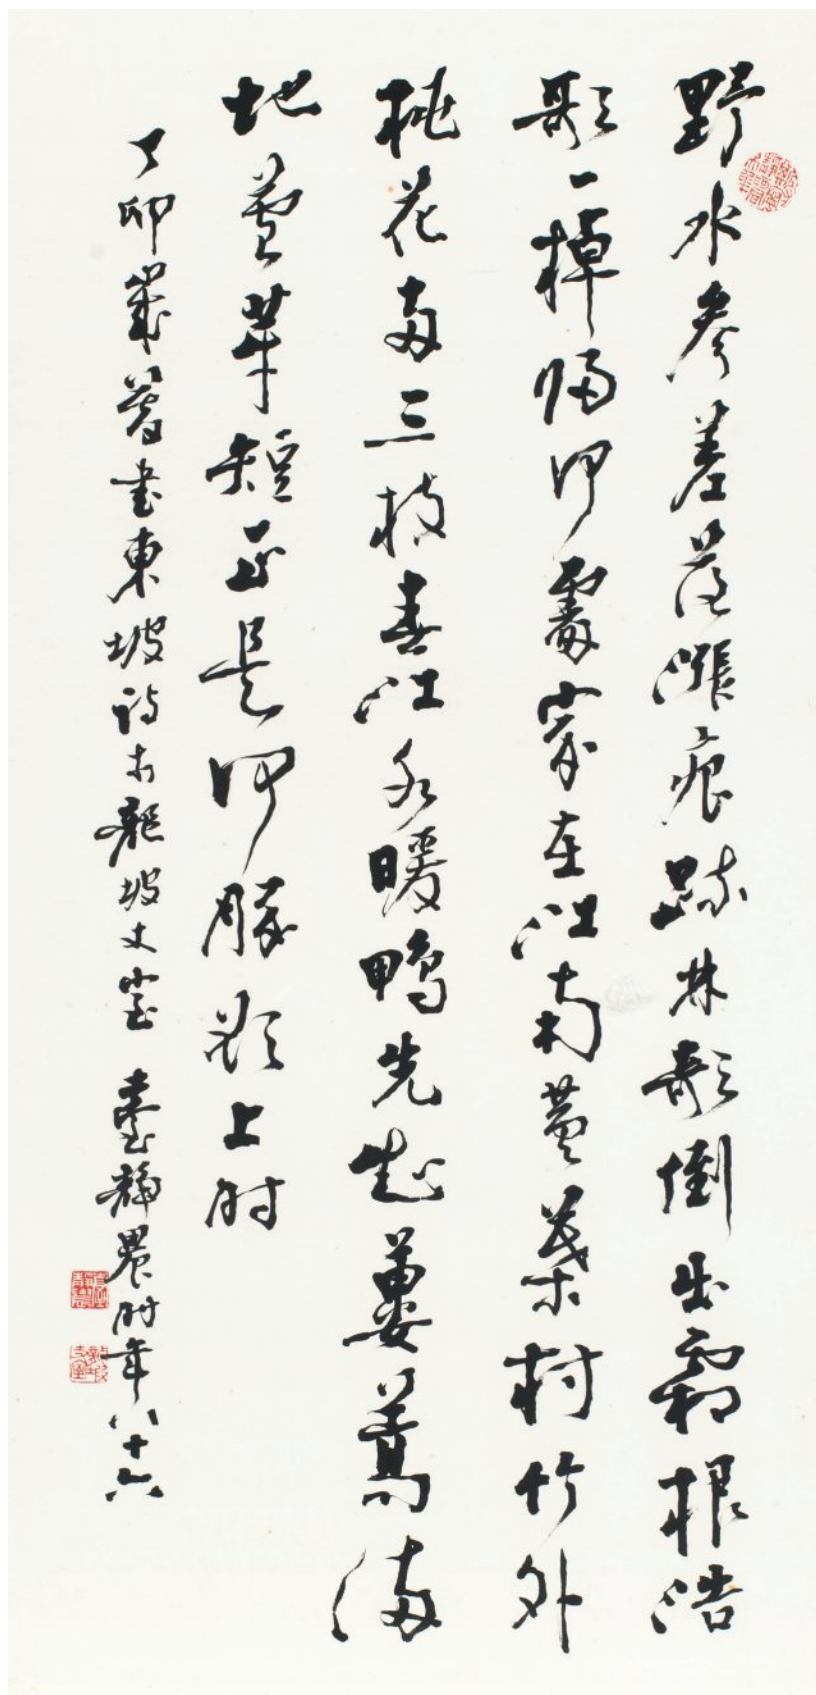 野水參差落漲痕疏林欹倒出霜根浩
歌一棹歸何處家在江南黃葉村竹外
桃花兩三枝春江水暖鴨先起蔞蒿滿
地蘆芽短正是河豚欲上時
丁卯歲暮書東坡詩於龍坡丈室 臺靜農時年八十六